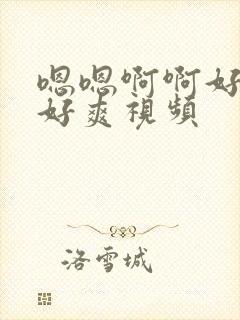 嗯嗯啊啊好
好爽視頻
洛雪城